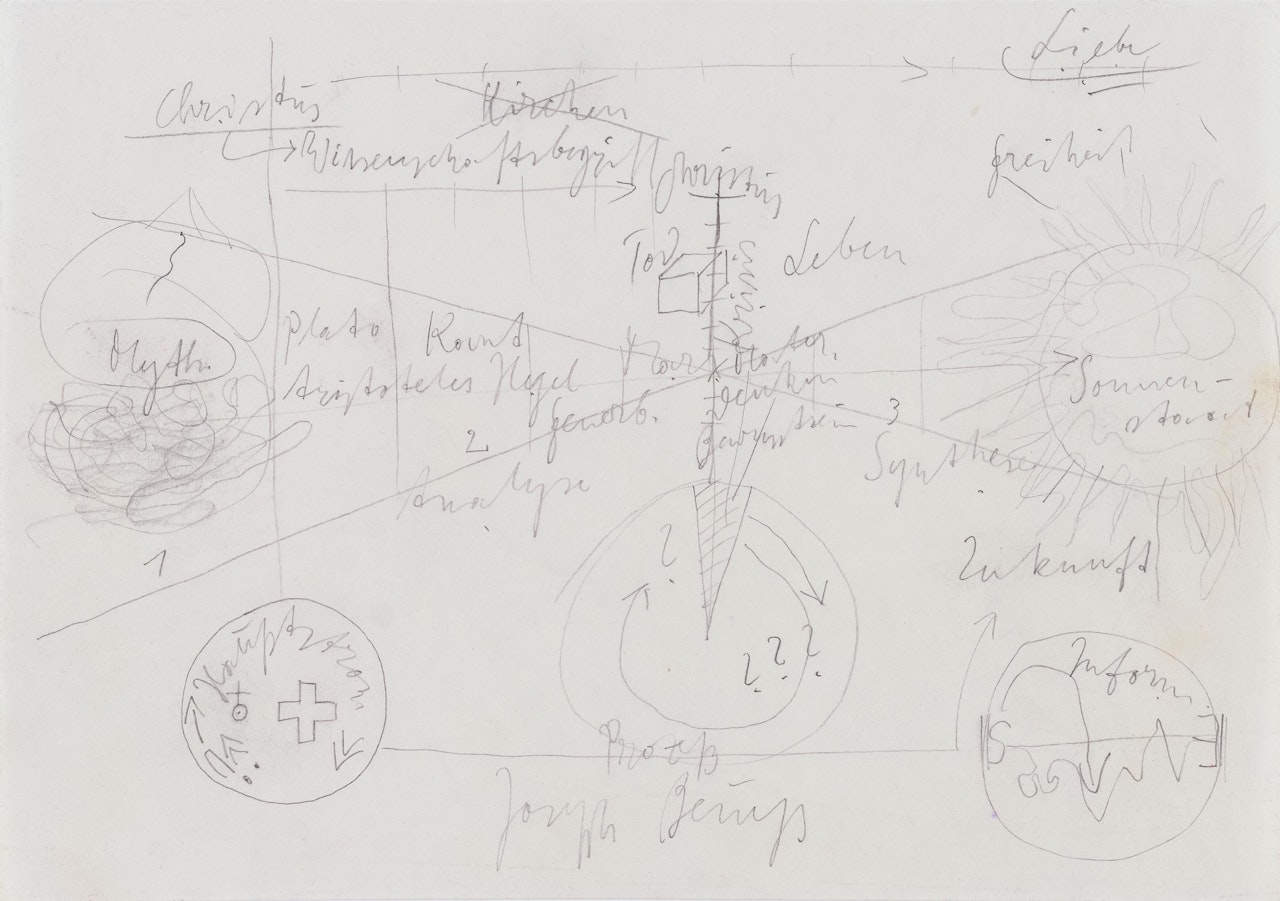 Liebe
Christus
Kirchen
Wissenschaftsbegriff
Christus
Freiheit
Tod
Leben
Plato
Kant
Aristoteles Hegel
Myth.
Mater.
Sonnen-
staat
denken
Bewußtsein
2
3
Analyse
Synthese
1
?
Zukunft
Hauptstrom
? ? ?
Inform.
S
E
Prozeß
Joseph Beuys